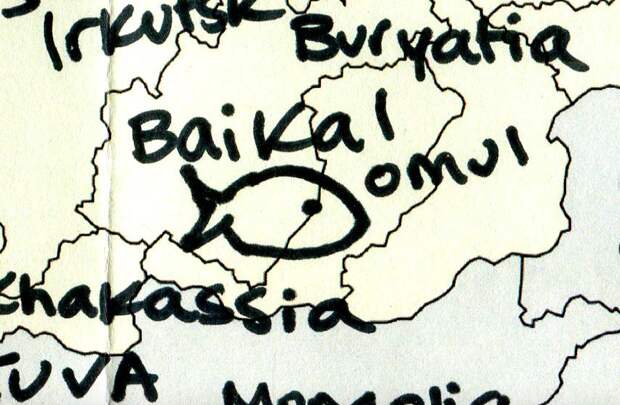 Irkutsk
Buryatia
Baikal
omul
Khakassia
TUVA
Mongolia